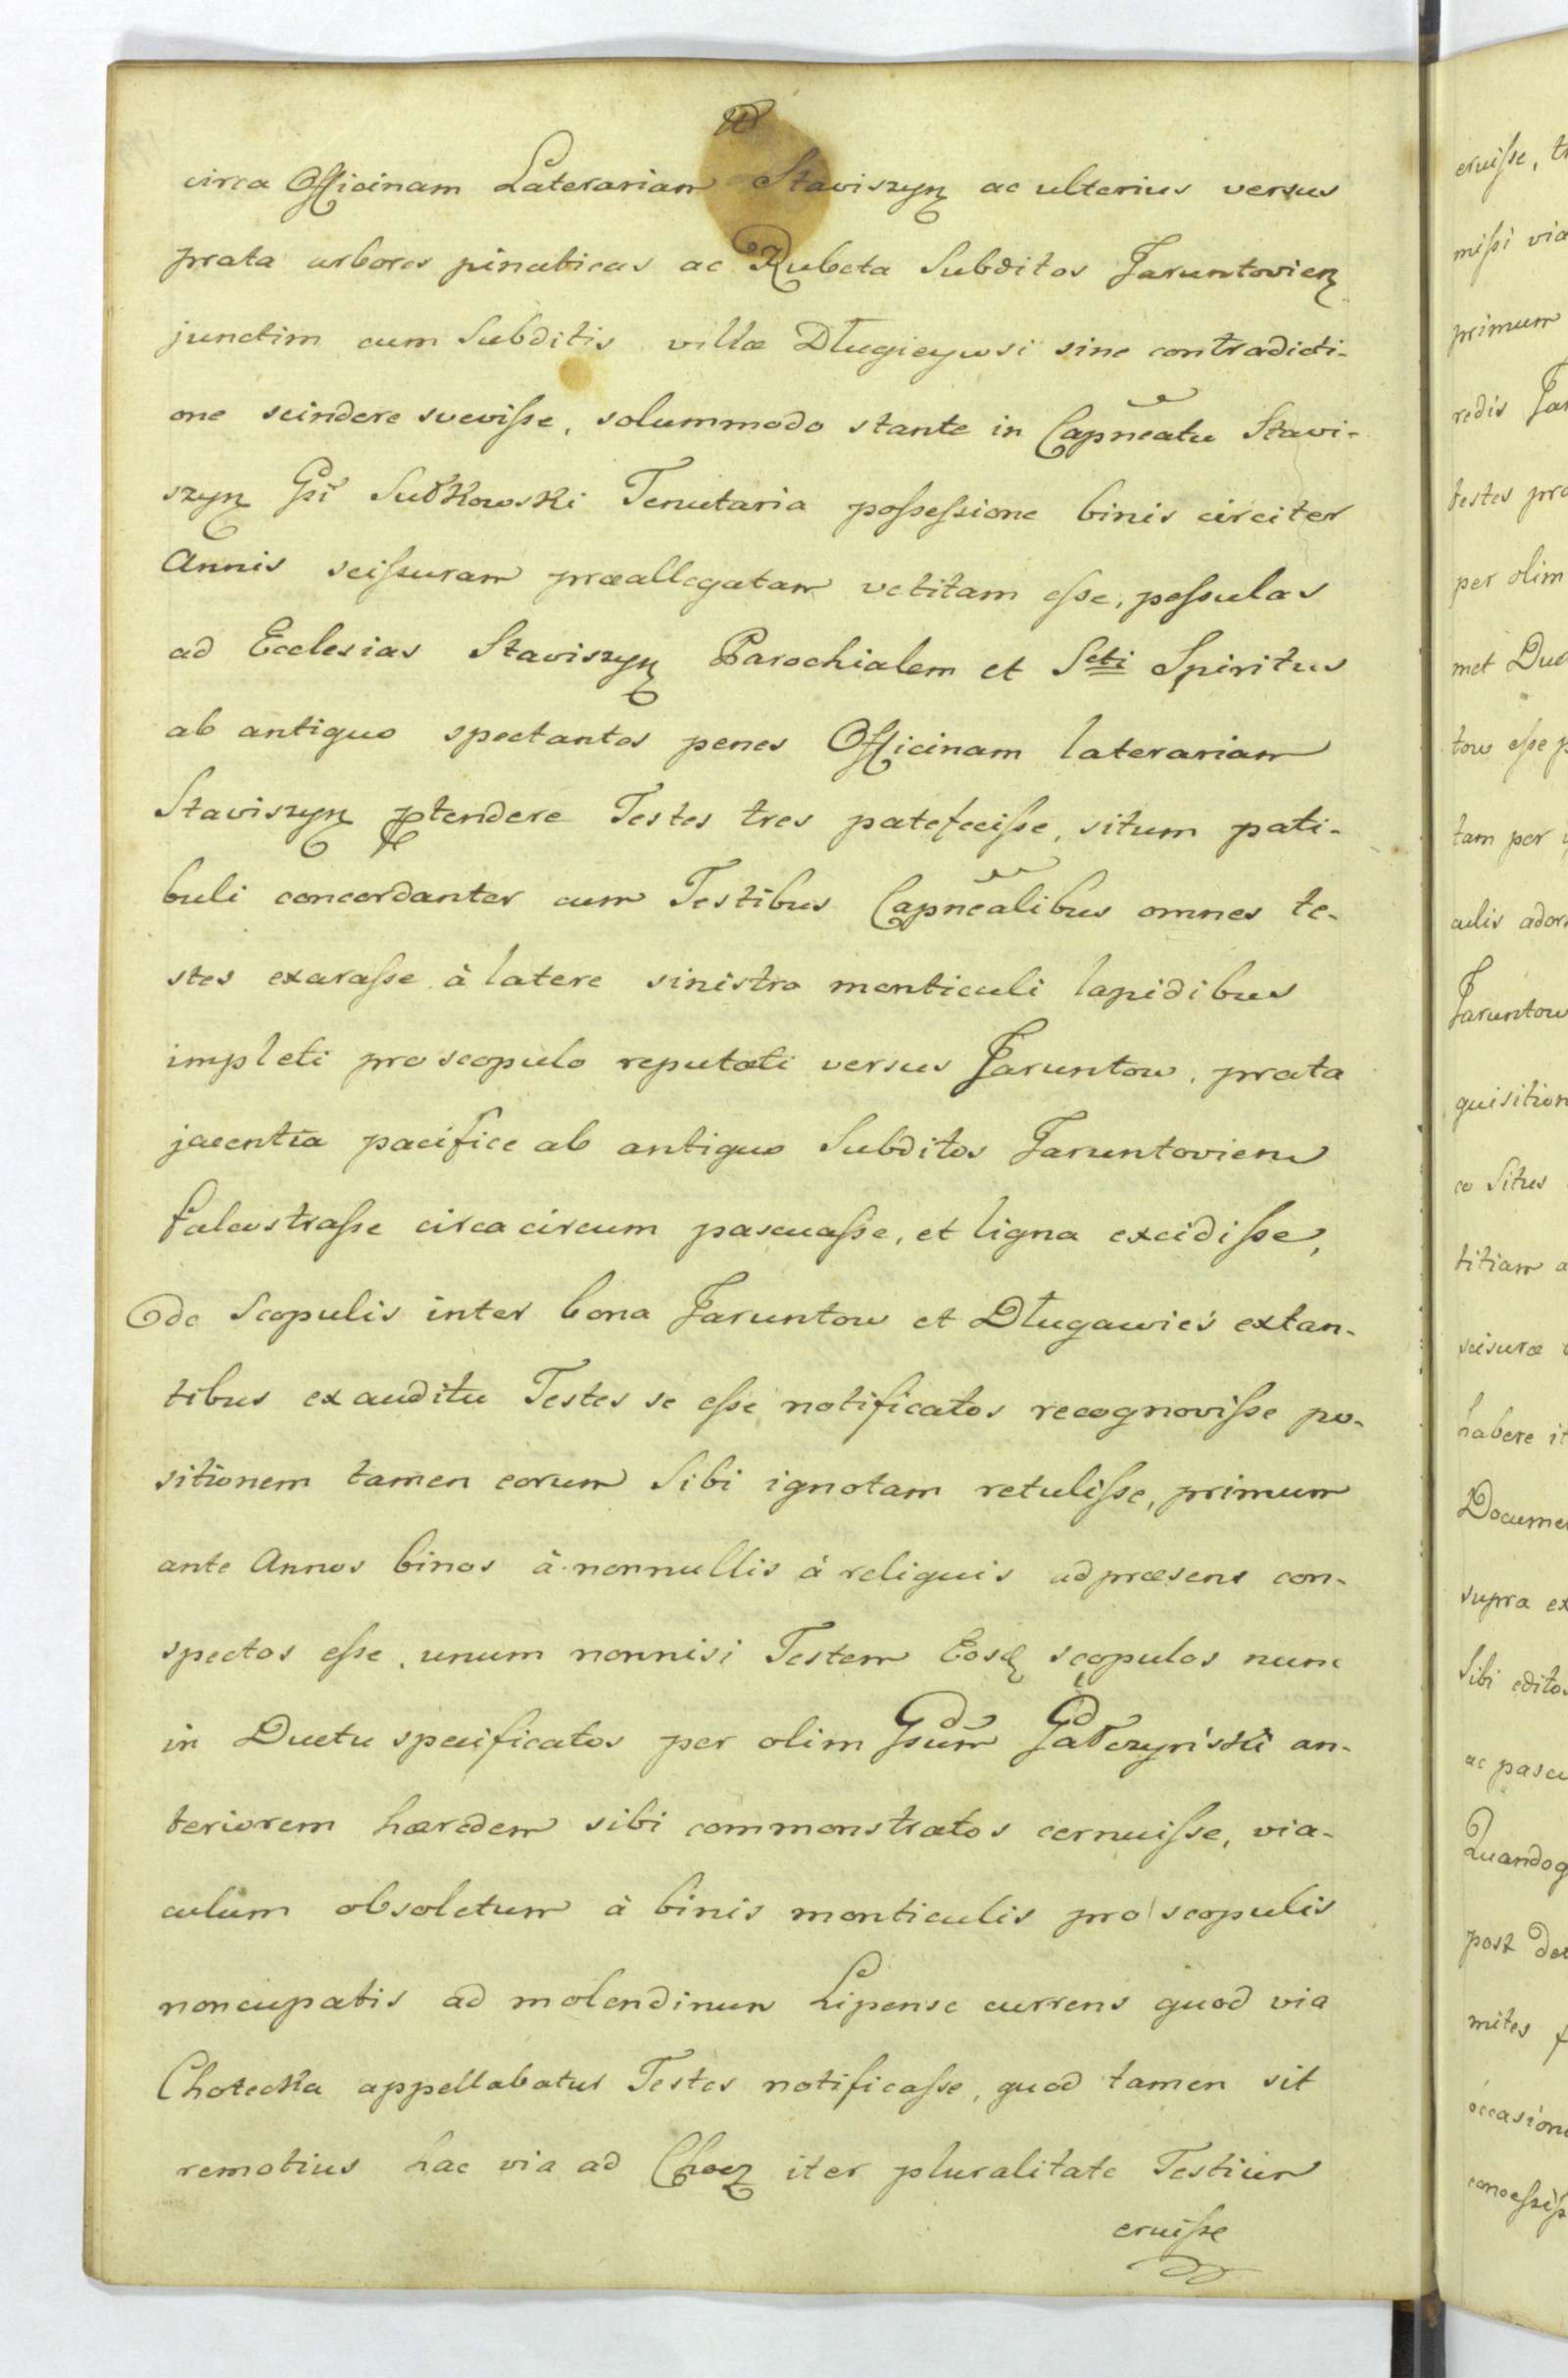 circa Officinam Laterariam Staviszyn ac ulterius versus
prata arbores pinaticas ac Rubeta Subditos Jaruntovien
junctim cum Subditis villæ Długieywsi sine contradicti-
one scindere suevisse, solummodo stante in Capneatu Stavi-
szyn Gsi Sutkowski Tenutaria possessione binis circiter
Annis scissuram præallegatam vetitam esse, possulas
ad Ecclesias Staviszyn Parochialem et Scti Spiritus
ab antiquo spectantes penes Officinam laterariam
Staviszyn ptendere Testes tres patefecisse, situm pati-
buli concordanter cum Testibus Capnealibus omnes te-
stes exarasse à latere sinistro monticuli lapidibus
impleti pro scopulo reputati versus Jaruntow, prata
jacentia pacifice ab antiquo Subditos Jaruntoviens
falcastrasse circa circum pascuasse, et ligna excidisse,
de Scopulis inter bona Jaruntow et Długawieś extan-
tibus ex auditu Testes se esse notificatos recognovisse po-
sitionem tamen eorum Sibi ignotam retulisse, primum
ante Annos binos à nonnullis à reliquis ad præsens con-
spectos esse, unum nonnisi Testem Eosq scopulos nunc
in Ductu specificatos per olim Gsum an-
teriorem hæredem sibi commonstratos cernuisse, via-
culum obsoletum à binis monticulis pro scopulis
noncupatis ad molendinum Lipense currens quod via
Chotecka appellabatur Testes notificasse, quod tamen sit
remotius hac via ad Chocz iter pluralitate Testium
eruisse
eruisse, t
missi via
primum
redis Jar
testes pro
per olim
met Duc
tow esse p
tam per
culis ador
Jaruntow
quisition
co Situs
titiam a
scisuræ
habere it
Documen
supra ex
Sibi edito
ac pascu
Quandoq
post de
mites f
occasion
concessis